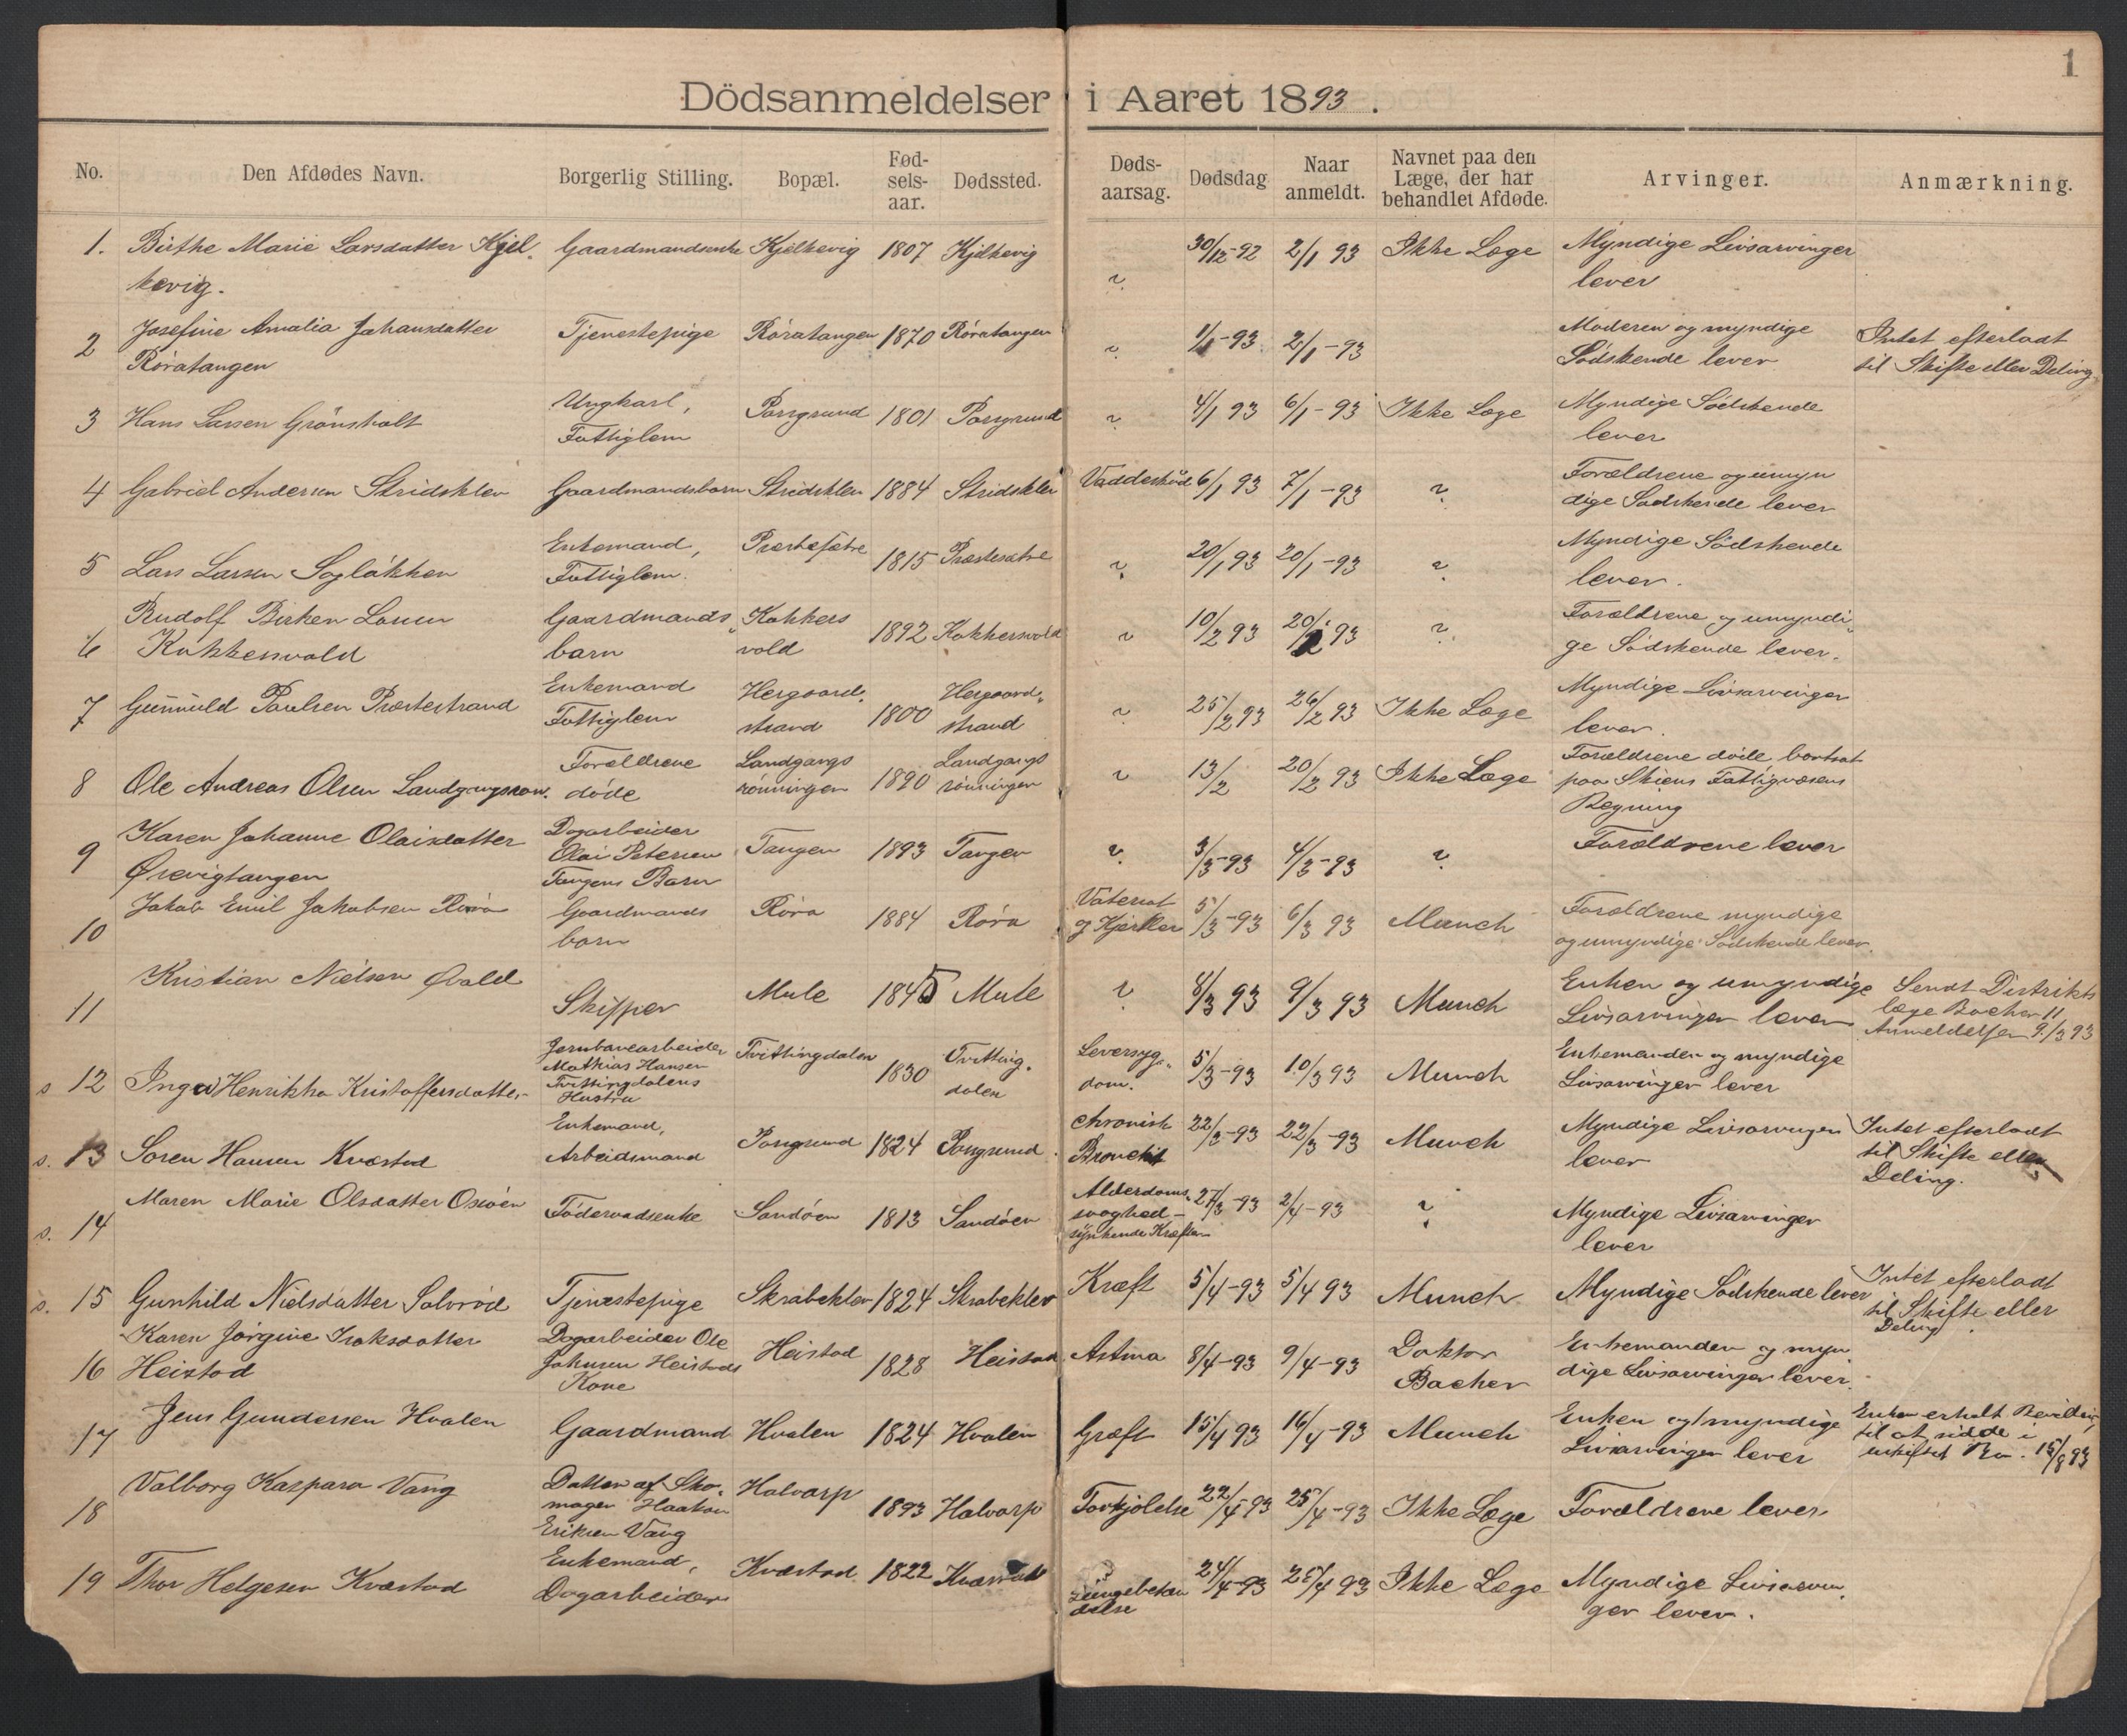 1
Dödsanmeldelser i Aaret 1893.
No. Den Afdødes Navn. Borgerlig Stilling. Bopæl. Fød-sels-aar. Dødssted. Døds-aarsag. Dødsdag Naar anmeldt. Navnet paa den Læge, der har behandlet Afdøde. Arvinger. Anmærkning.
1. Birthe Marie Larsdatter Kjel- Gaardmandsenke Kjelkevig 1807 Kjelkevig ? 30/12-92 2/1 93 Ikke Læge Myndige Livsarvinger
kevig. lever
2 Josefine Amalia Johansdatter Tjenestepige Røratangen 1870 Røratangen ? 1/1-93 2/1-93 Moderen og myndige Intet efterladt
Røratangen Sødskende lever til Skifte eller Deling
3 Hans Larsen Grönsholt Ungkarl, Porsgrund 1801 Porsgrund ? 4/1 93 6/1-93 Ikke Læge Myndige Sødskende
Fattiglem lever
4 Gabriel Andersen Stridsklev Gaardmandsbarn Stridsklev 1884 Stridsklev 6/1 93 7/1-93 ? Forældrene og umyn
dige Sødskende lever
5 Lars Larsen Enkemand, 1815 ? 20/1 93 20/1-93 ? Myndige Sødskende
Fattiglem. lever.
6 Rudolf Birken Larsen Gaardmands Kokkers 1892 Kokkersvold ? 10/2 93 20/2 93 ? Forældrene og umyndi-
Kokkersvold barn vold ge Sødskende lever.
7 Gunnuld Paulsen Præstestrand Enkemand Hergaard- 1800 Hergaard- ? 25/2 93 26/2 93 Ikke Læge Myndige Livsarvinger
Fattiglem strand strand lever.
8 Ole Andreas Olsen Landgangsrøn. Forældrene Landgangs 1890 Landgangs ? 13/2 20/2 93 Ikke Læge Forældrene døde, bortsat
døde rønningen rønningen paa Skiens Fattigvæsens
Regning
9 Karen Johanne Olaisdatter Dagarbeider Tangen 1893 Tangen ? 3/3-93 4/3-93 ? Forældrene lever
Ørevigtangen Olai Petersen
Tangens Barn
10 Jakob Emil Jakobsen Røra Gaardmands Røra 1884 Røra Vatersot 5/3-93 6/3 93 Munch Forældrene myndige
barn og Kjertler og umyndige Sødskende lever.
11 Kristian Nielsen Øvald Skipper Mule 1845 Mule ? 8/3 93 9/3 93 Munch Enken og umyndige Sendt Distrikts
Livsarvinger lever læge Bacher
Anmeldelsen 9/3 93
s 12 Inga Henrikka Kristoffersdatter Jernbanearbeider Tvittingdalen 1830 Tvitting- Leversyg- 5/3-93 10/3 93 Munch Enkemanden og myndige
Mathias Hansen dalen dom. Livsarvinger lever
Tvittingdalens
Hustru
s. 13 Søren Hansen Kvæstad Enkemand, Porsgrund 1824 Porsgrund Chronisk 22/3-93 22/3-93 Munch Myndige Livsarvinger Intet efterladt
Arbeidsmand Bronchit lever til Skifte eller
Deling.
s. 14 Maren Marie Olsdatter Føderaadsenke Sandøen 1813 Sandøen Alderdoms- 27/3-93 2/4-93 ? Myndige Livsarvinger
svaghed- lever
synkende Kræfter
s. 15 Gunhild Nielsdatter Solvrød Tjenestepige Skrabeklev 1824 Skrabeklev Kræft 5/4-93 5/4 93 Munch Myndige Sødskende lever Intet efterladt
til Skifte eller
Deling.
16 Karen Jørgine Isaksdatter Dagarbeider Ole Heistad 1828 Heistad Astma 8/4-93 9/4-93 Doktor Enkemanden og myn
Heistad Johnsen Heistads Bacher dige Livsarvinger lever.
Kone
17 Jens Gundersen Hvalen Gaardmand Hvalen 1824 Hvalen Græft 15/4 93 16/4-93 Munch Enken og myndige Enken erholdt Bevilling
Livsarvinger lever til at sidde i
uskiftet Bo. 15/8 93
18 Valborg Kaspara Vang Datter af Sko- Halvarp 1893 Halvarp Forkjølelse 22/4-93 25/4-93 Ikke Læge Forældrene lever
mager Haakon
Eriksen Vang
19 Thor Helgesen Kvæstad Enkemand, Kvæstad 1822 Kvæstad Lungebetæn 24/4-93 25/4 93 Ikke Læge Myndige Livsarvin
Dagarbeider delse ger lever.